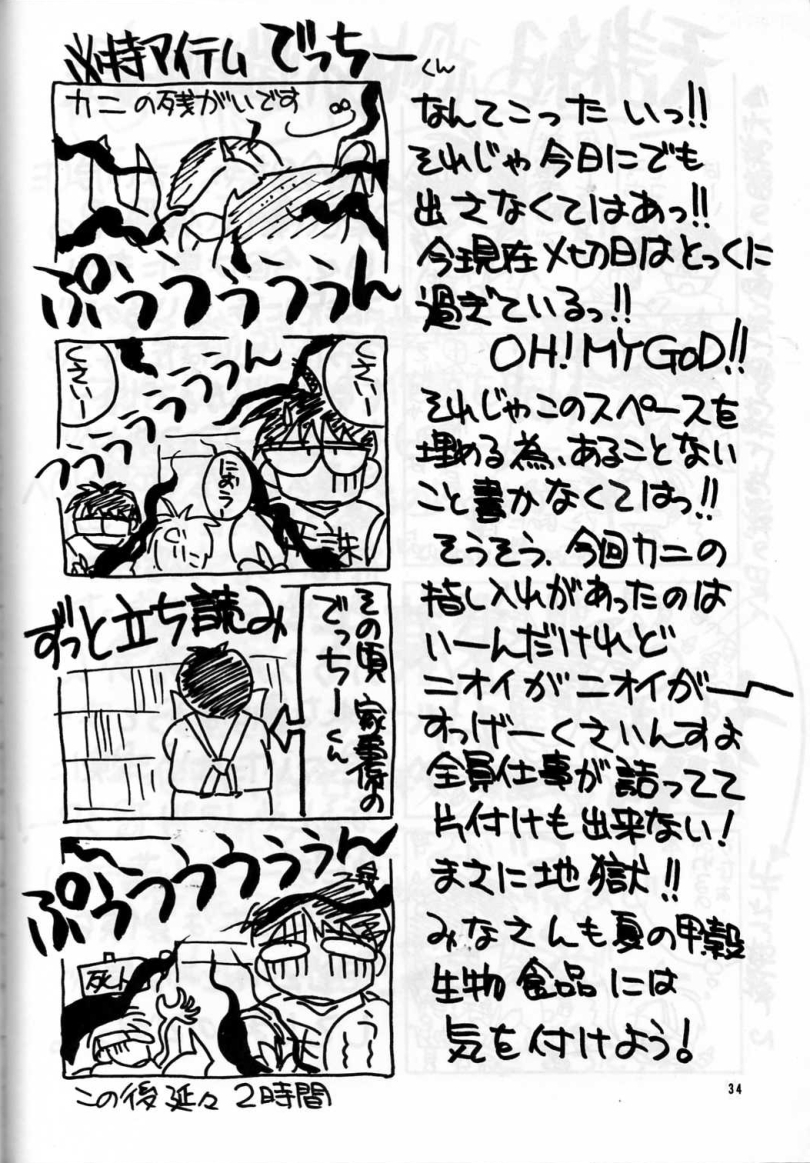 必特アイテム でっちーくん
カニの残がいです
ぷぅぅぅぅぅん
くさいー
くさいー
うううううぅん
におうー
誅
その頃家事係の
でっちーくん
ずっと立ち読み
ぷぅぅぅぅぅぅん
死人
う
この後延々2時間
なんてこったいっ!!
それじゃ今日にでも
出さなくてはあっ!!
今現在〆切日はとっくに
過ぎているっ!!
OH! MY GOD!!
それじゃこのスペースを
埋める為、あることない
こと書かなくてはっ!!
そうそう、今回カニの
指し入れがあったのは
いーんだけれど
ニオイがニオイがー
すっげーくさいんすよ
全員仕事が詰ってて
片付けも出来ない!
まさに地獄!!
みなさんも夏の甲殻
生物食品には
気を付けよう!
34